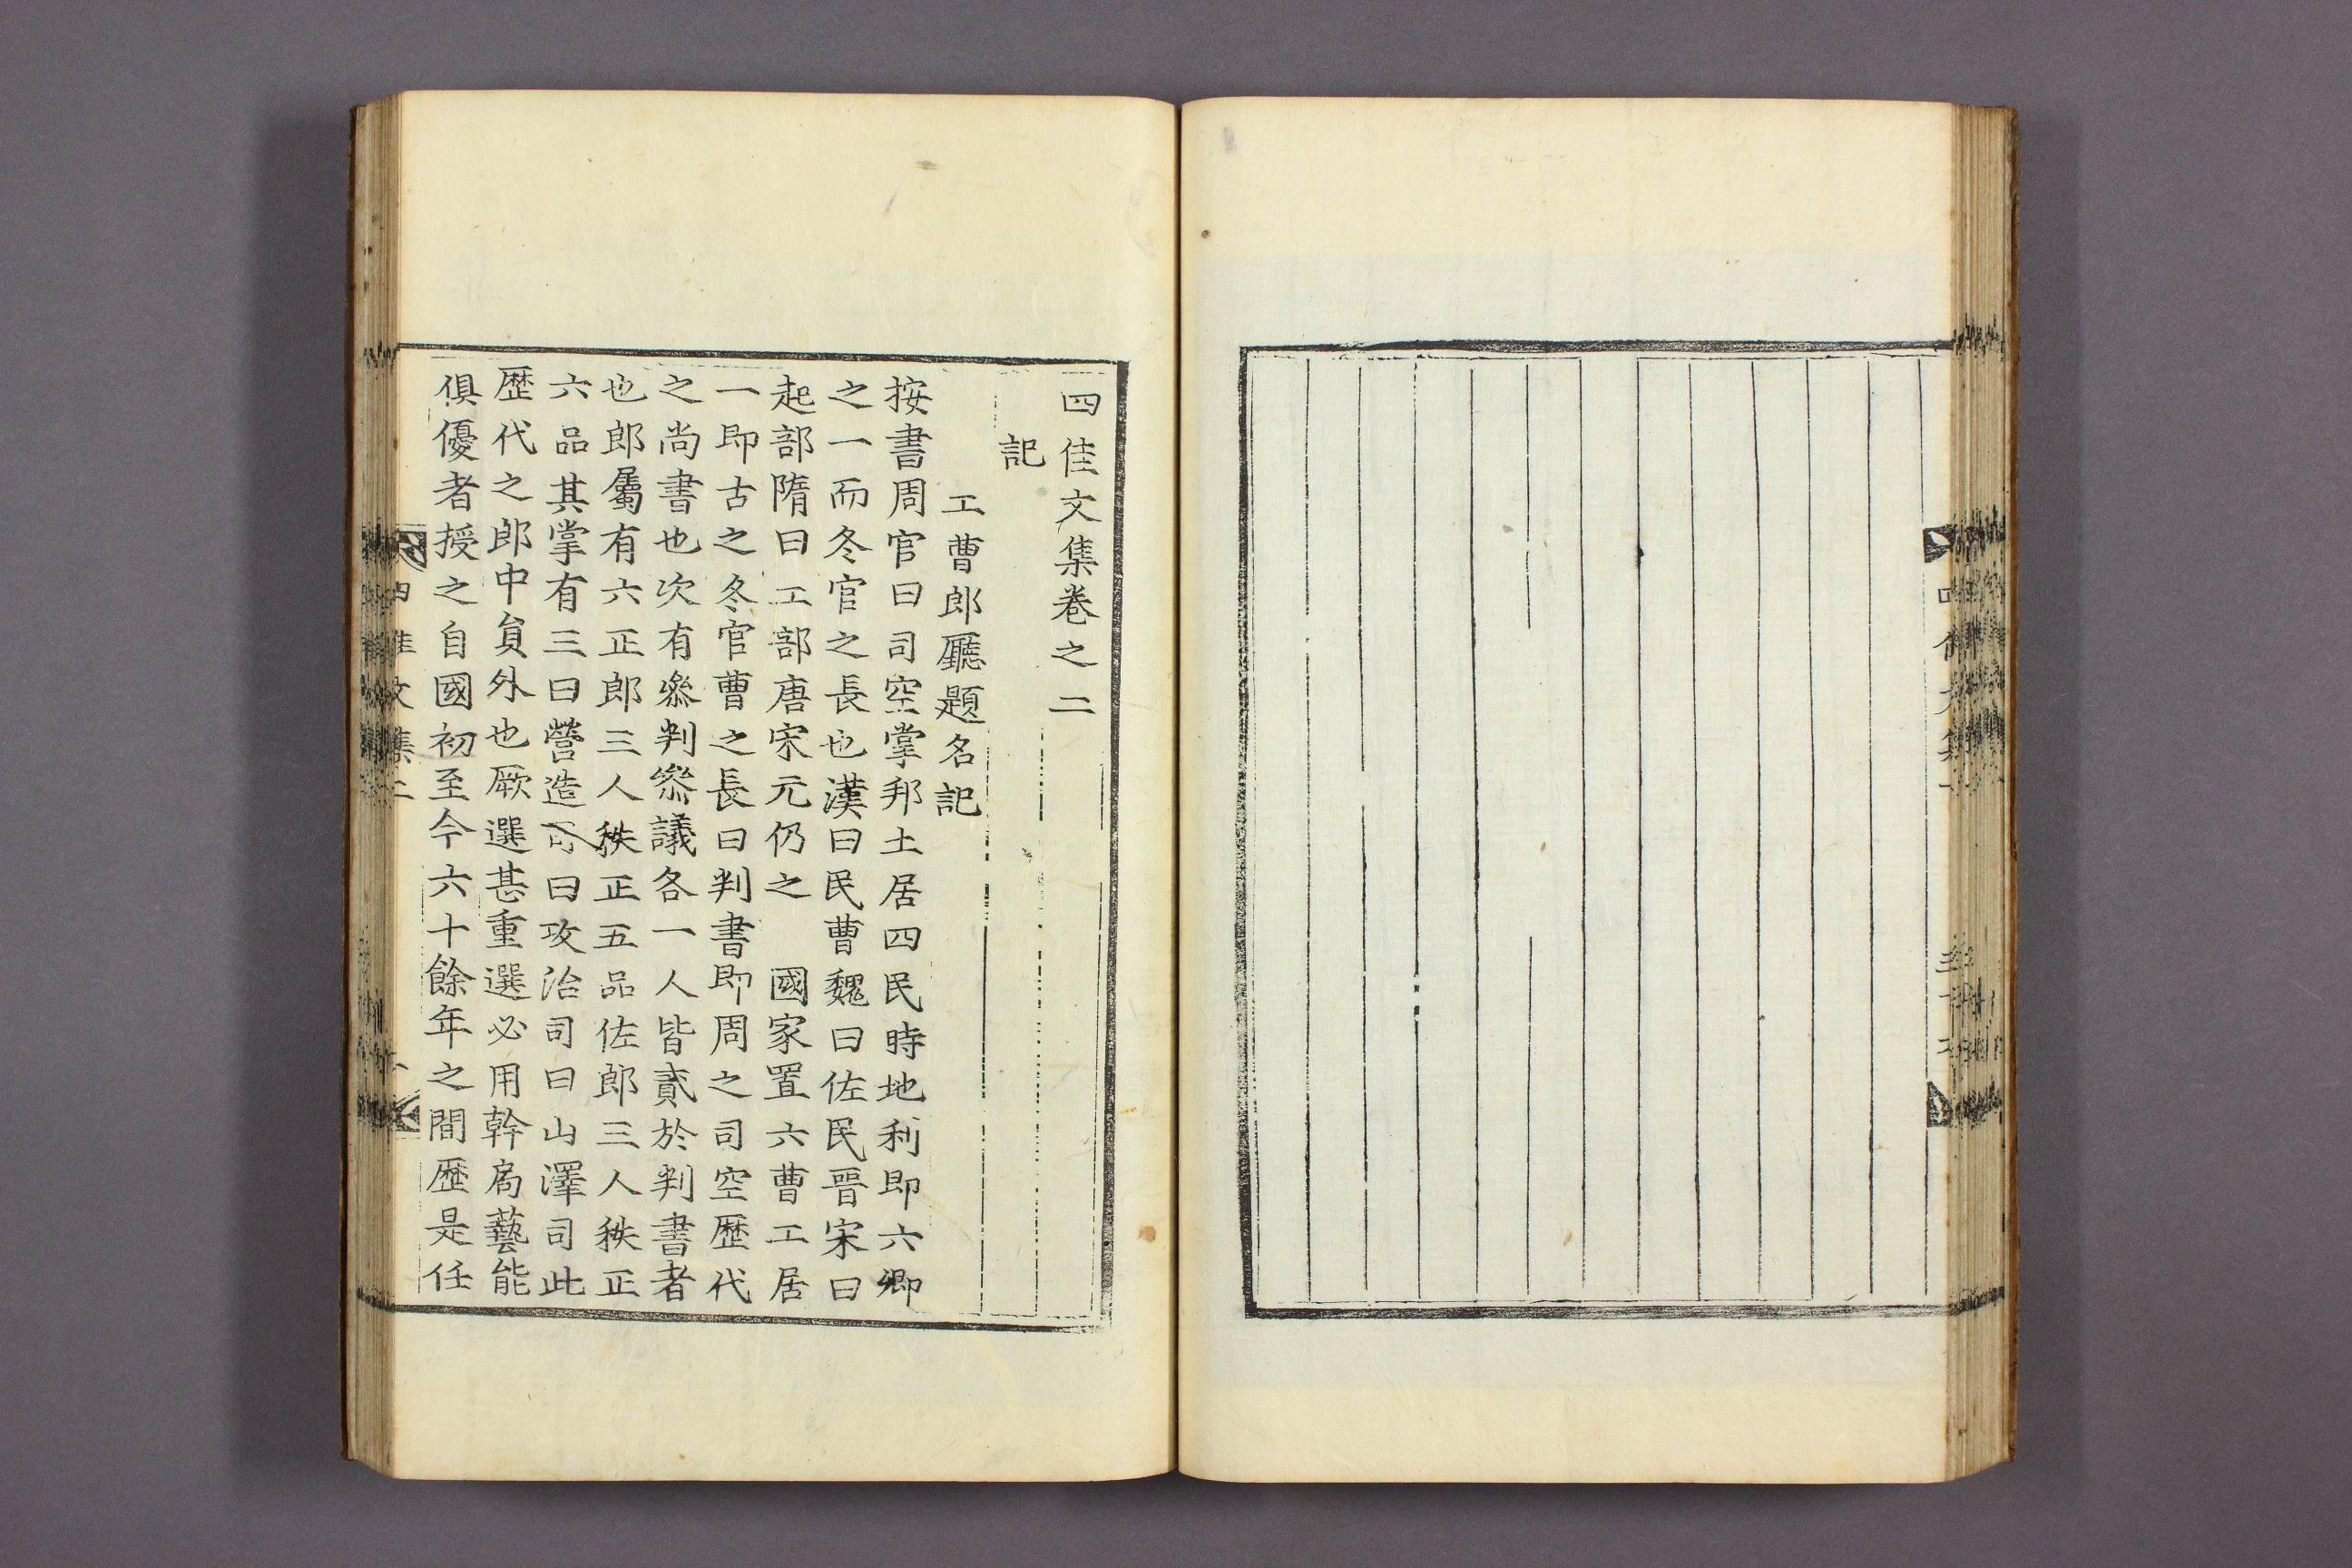 四佳文集卷之二
記
工曹郎廳題名記
按書周官曰司空掌邦土居四民時地利即六卿
之一而冬官之長也漢曰民曹魏曰佐民晉宋曰
起部隋曰工部唐宋元仍之 國家置六曹工居
一即古之冬官曹之長曰判書即周之司空歷代
之尚書也次有叅判叅議各一人皆貳於判書者
也郎屬有六正郎三人秩正五品佐郎三人秩正
六品其掌有三曰營造司曰攻治司曰山澤司此
歷代之郎中貟外也厥選甚重選必用幹局藝能
俱優者授之自國初至今六十餘年之間歷是任
四佳文集二